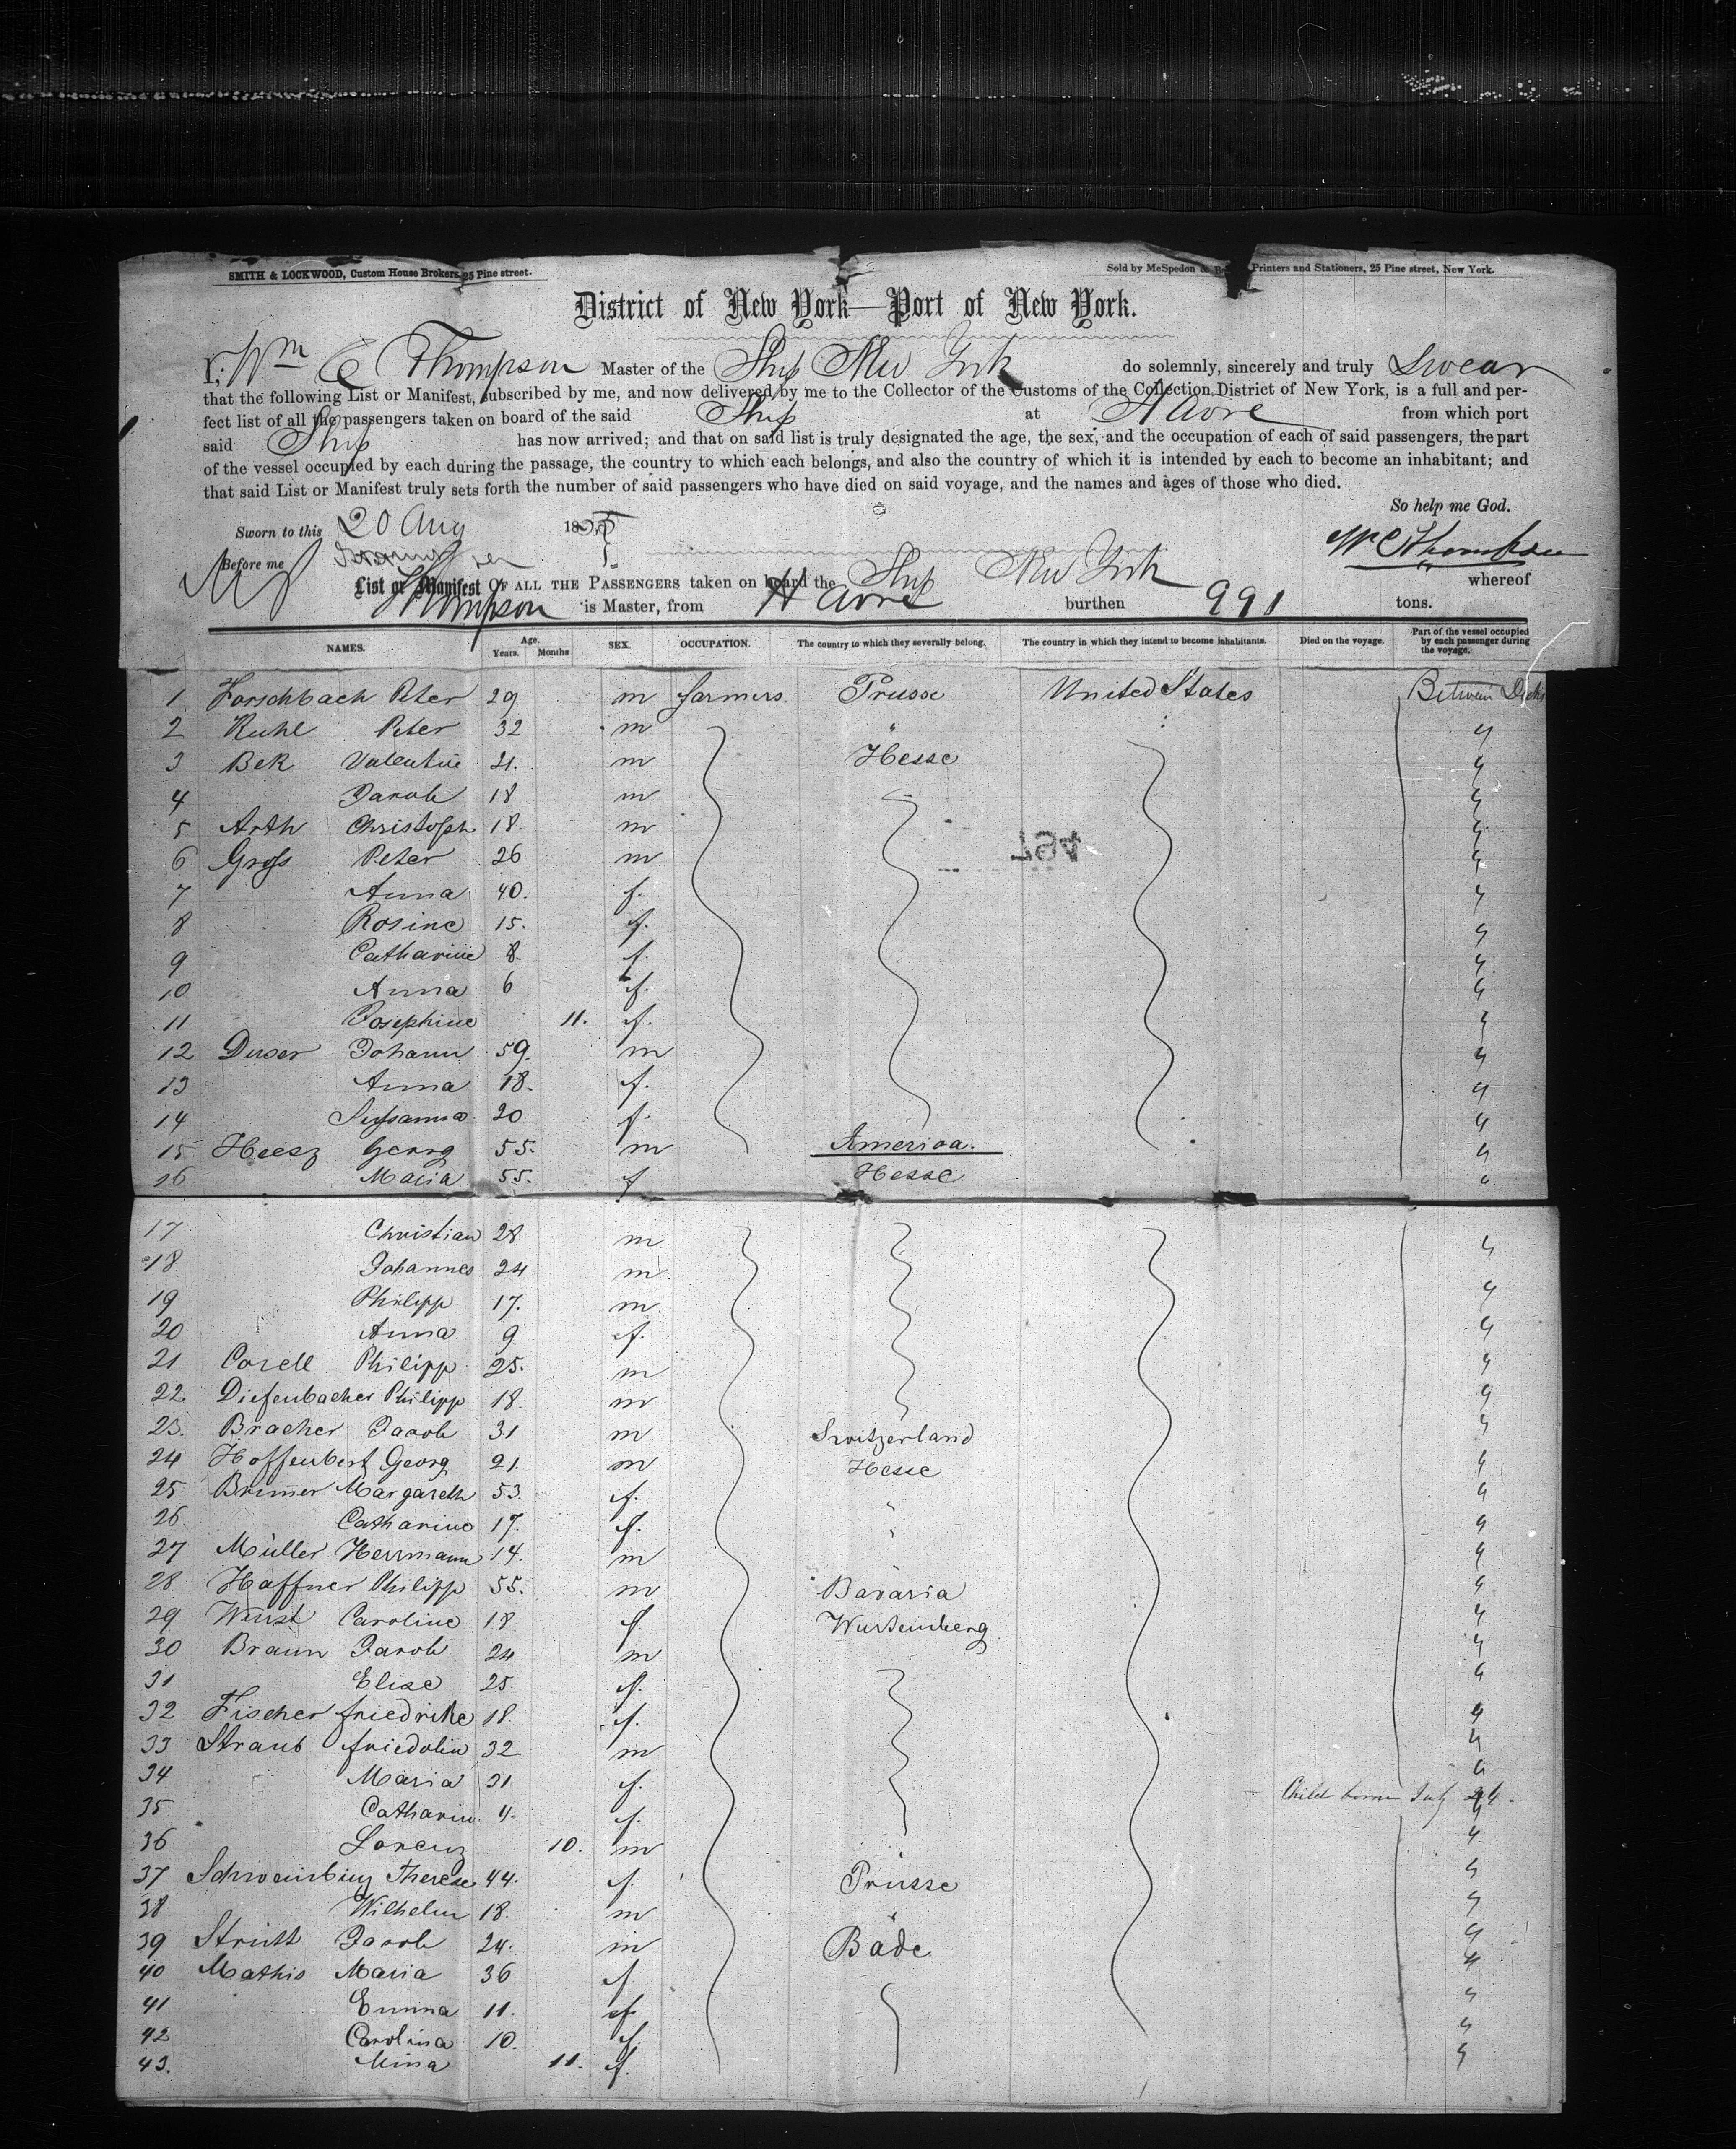 SMITH & LOCKWOOD, Custom House Brokers, 25 Pine street.
Sold by McSpedon & Printers and Stationers, 25 Pine street, New York.
District of New York—Port of New York.
I, Wm C Thompson Master of the Ship New York do solemnly, sincerely and truly Swear
that the following List or Manifest, subscribed by me, and now delivered by me to the Collector of the Customs of the Collection District of New York, is a full and per-
fect list of all the passengers taken on board of the said Ship at Havre from which port
said Ship has now arrived; and that on said list is truly designated the age, the sex, and the occupation of each of said passengers, the part
of the vessel occupied by each during the passage, the country to which each belongs, and also the country of which it is intended by each to become an inhabitant; and
that said List or Manifest truly sets forth the number of said passengers who have died on said voyage, and the names and ages of those who died.
So help me God.
Sworn to this 20 Aug 1855
Before me
Wm C Thompson
List or Manifest OF ALL THE PASSENGERS taken on board the Ship New York whereof
Thompson is Master, from Havre burthen 991 tons.
NAMES. Age. Years. Months SEX. OCCUPATION. The country to which they severally belong. The country in which they intend to become inhabitants. Died on the voyage. Part of the vessel occupied by each passenger during the voyage.
1 Forschbach Peter 29 m farmers Prusse United States Between Decks
2 Ruhl Peter 32 m " "
3 Bek Valentin 21. m Hesse "
4 Jacob 18 m "
5 Arth Christoph 18. m "
6 Gross Peter 26 m "
7 Anna 40. f. "
8 Rosine 15. f. "
9 Catharine 8. f. "
10 Anna 6 f. "
11 Josephine 11. f. "
12 Duser Johann 59. m "
13 Anna 18. f. "
14 Sussanna 20 f. "
15 Heesz Georg 55. m America. "
16 Maria 55. f Hesse "
17 Christian 28 m "
18 Johannes 24 m "
19 Philipp 17. m "
20 Anna 9 f. "
21 Corell Philipp 25. m "
22 Diefenbacher Philipp 18. m "
23. Bracher Jacob 31 m Switzerland "
24 Hoffenbert Georg 21. m Hesse "
25 Brimer Margareth 53. f. " "
26 Catharine 17. f. " "
27 Müller Herrmann 14. m "
28 Haffner Philipp 55. m Bavaria "
29 Wurst Caroline 18 f. Wurtemberg "
30 Braun Jacob 24 m "
31 Elise 25 f. "
32 Fischer friedrike 18. f. "
33 Straub friedolin 32 m "
34 Maria 31 f. "
Child born July 24.
35 Catharin 4. f. "
36 Lorenz 10. m "
37 Therese 44. f. Prusse "
38 Wilhelm 18. m " "
39 Jacob 24. m Bade "
40 Mathis Maria 36 f. "
41 Emma 11. f "
42 Carolina 10. f. "
43. Mina 11. f. "
497